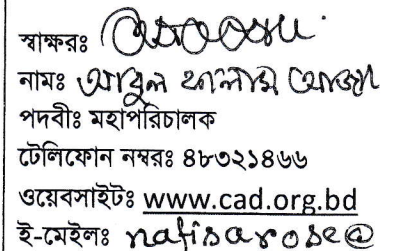 স্বাক্ষরঃ
নামঃ আবুল কালাম আজাদ
পদবীঃ মহাপরিচালক
টেলিফোন নম্বরঃ ৪৮৩২১৪৬৬
ওয়েবসাইটঃ www.cad.org.bd
ই-মেইলঃ nafisarose@